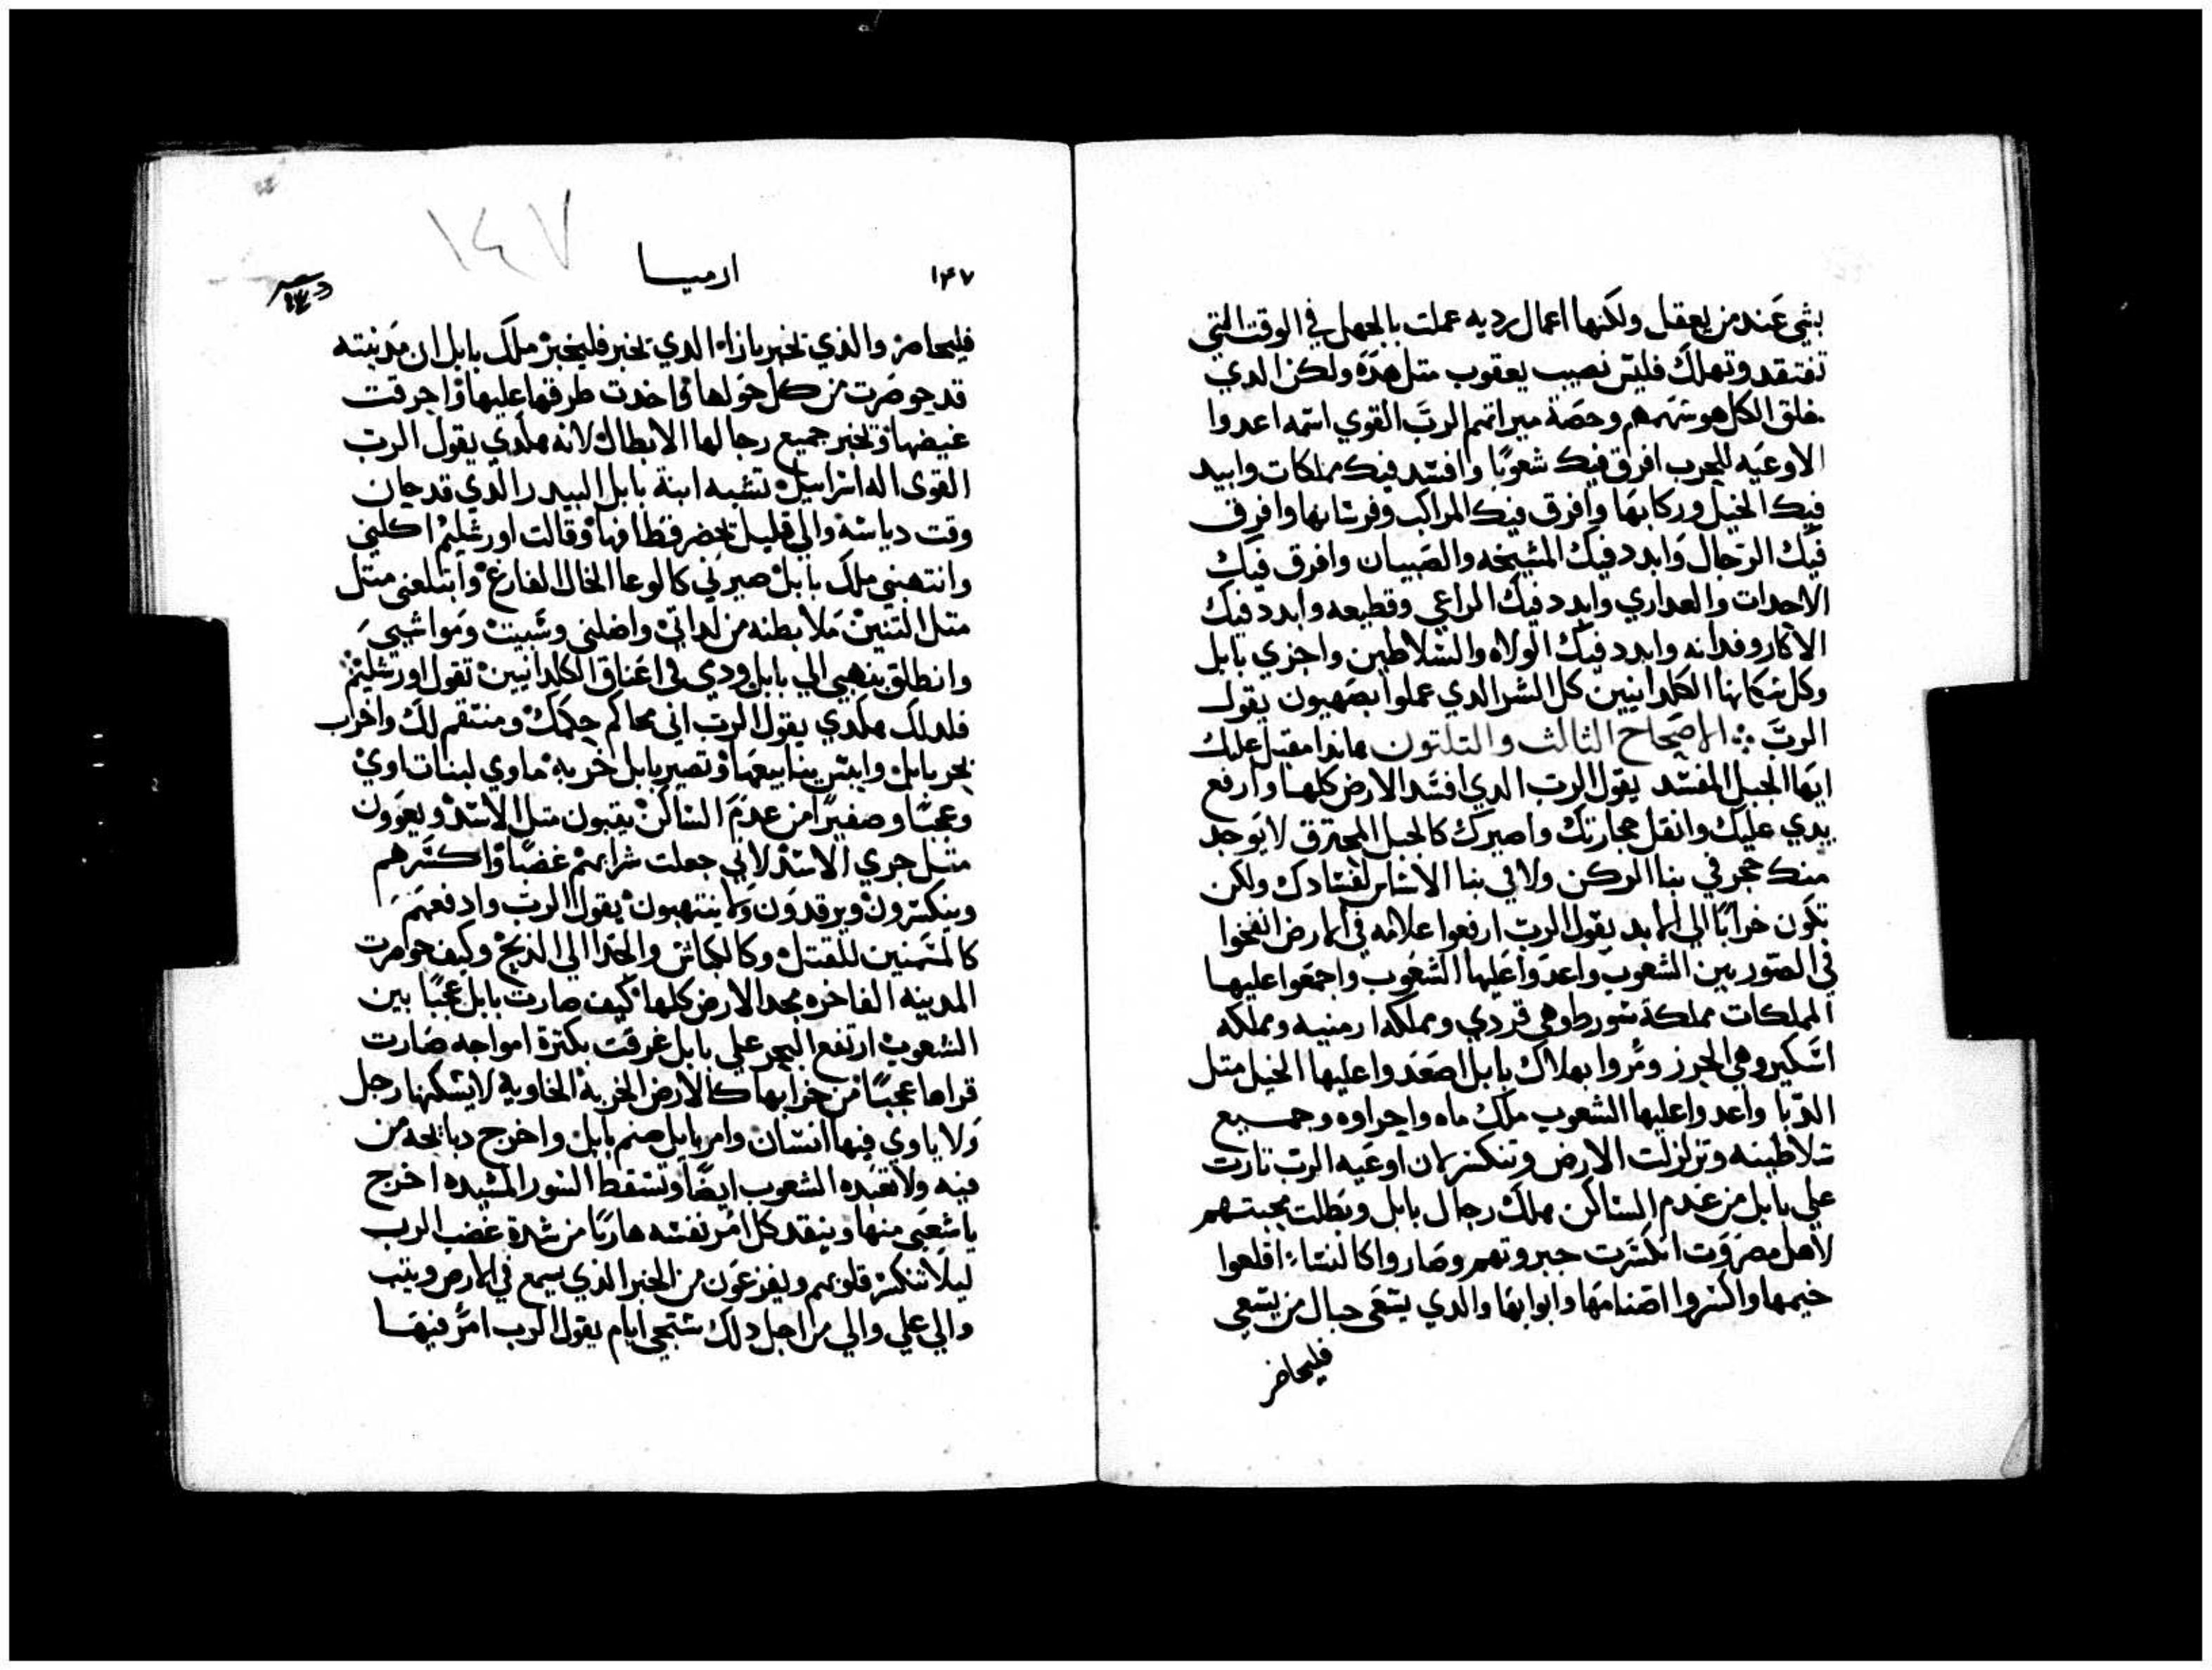 بشي عند من يعقل ولكنها اعمال رديه عملت بالجهل في الوقت التي
تفتقد وتهلك فليس نصيب يعقوب متل هده ولكن الدي
خلق الكل هو سهمهم وحصة ميراتهم الرب القوي اسمه اعدوا
الاوعيه للحرب افرق فيك شعوبًا وافسد فيك مملكات وابيد
فيك الخيل وركابها وافرق فيك المراكب وفرسانها وافرق
فيك الرجال وابدد فيك المشيخه والصبيان وافرق فيك
الاحدات والعداري وابدد فيك الراعي وقطيعه وابدد فيك
الاكار وفدانه وابدد فيك الولاه والسلاطين واجزي بابل
وكل سكانها الكلدانيين كل الشر الدي عملوا بصهيون يقول
الرب ܀ الاصحاح الثالث والتلتون هاندا مقبل عليك
ايها الجبل المفسد يقول الرب الدي افسد الارض كلها وارفع
يدي عليك وانقل حجارتك واصيرك كالجبل المحترق لا يوجد
منك حجر في بنا الركن ولا في بنا الاساس لفسادك ولكن
تكون خرابًا الي الابد يقول الرب ارفعوا علامه في الارض انفخوا
في الصور بين الشعوب واعدوا عليها الشعوب واجمعوا عليها
المملكات مملكة سورطوهي قردي ومملكه ارمنيه ومملكه
اسكيروهي الجرز ومروا بهلاك بابل اصعدوا عليها الخيل متل
الدبا واعدوا عليها الشعوب ملك ماه واجراوه وجميع
سلاطينه وتزلزلت الارض وتنكسر لان اوعيه الرب تارت
علي بابل من عدم الساكن هلك رجال بابل وبطلت محبتهم
لاهل مصروت انكسرت جبروتهم وصاروا كالنساء اقلعوا
خيمها واكسروا اصنامها وابوابها والدي يسعي حبال من يسعي
فليحاضر
١٤٧
١٤٧ ارميا
فليحاضر والذي تخبر بازاء الدي تخبر فليخبر ملك بابل ان مدينته
قد حوصرت من كل حولها واخدت طرقها عليها واحرقت
غيضها وتخبر جميع رجالها الابطال لانه هكدي يقول الرب
القوي اله اسراييل تشبه ابنة بابل البيدر الذي قد حان
وقت دياسه والي قليل تحضر قطافها وقالت اورشليم اكلني
وانتهبني ملك بابل صيرني كالوعا الخال الفارغ وابتلعني متل
متل التنين ملا بطنه من لداتي واضلني وشبيت ومواشيي
وانطلق بنهبي الي بابل ودمي في اعناق الكلدانيين تقول اورشليم
فلدلك هكدي يقول الرب اني محاكم حكمك ومنتقم لك واخراب
بحر بابل وايبس ينابيعها وتصير بابل خربه ماوي لبنات اوي
وعجبًا وصفيرًا من عدم الساكن يتبون متل الاسد ويعوون
متل جري الاسد لاني جعلت شرابهم غضبًا واكسرهم
وينكسرون ويرقدون ولا ينتهبون يقول الرب وادفعهم
كالمسمنين للقتل وكالكباش والجدا الي الذبح وكيف حوصرت
المدينه الفاخره مجد الارض كلها كيف صارت بابل عجبًا بين
الشعوب ارتفع البحر علي بابل غرقت بكترة امواجه صارت
قراها عجبًا من خرابها كالارض الخربة الخاوية لا يسكنها رجل
ولا ياوي فيها انسان وامر بابل صنم بابل واخرج دبايحه من
فيه ولا تعبده الشعوب ايضًا وتسقط السور المشيده اخرج
يا شعبي منها وينقد كل امر نفسه هاربًا من شدة غضب الرب
ليلا تنكسر قلوبهم ويفزعون من الخبر الذي يسمع في الارض ويتب
والي علي والي من اجل دلك ستجي ايام يقول الرب امر فيها